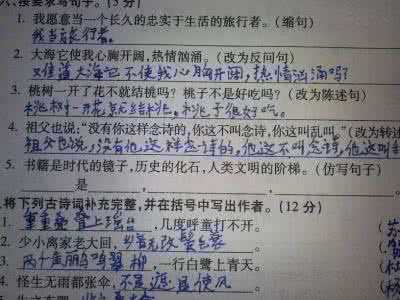 六、按要求写句子。(5分)
1. 我愿意当一个长久的忠实于生活的旅行者。(缩句)
我当旅行者。
2. 大海它使我心胸开阔,热情汹涌。(改为反问句)
难道大海它不使我心胸开阔,热情汹涌吗?
3. 桃树一开了花不就结桃吗?桃子不是好吃吗?(改为陈述句)
桃树一开花就结桃,桃子很好吃。
4. 祖父也说:“没有你这样念诗的,你这不叫念诗,你这叫乱叫。”(改为转述
祖父也说,没有他这样念诗的,他这不叫念诗,他这叫
5. 书籍是时代的镜子,历史的化石,人类文明的阶梯。(仿写句子)
是 , , 。
将下列古诗词补充完整,并在括号中写出作者。(12分)
1. 重重叠叠上瑶台,几度呼童打不开。
2. 少小离家老大回,乡音无改鬓毛衰。
3. 两个 鹂鸣翠柳,一行白鹭上青天。
4. 怪生无雨都张伞,不是遮 是使风。